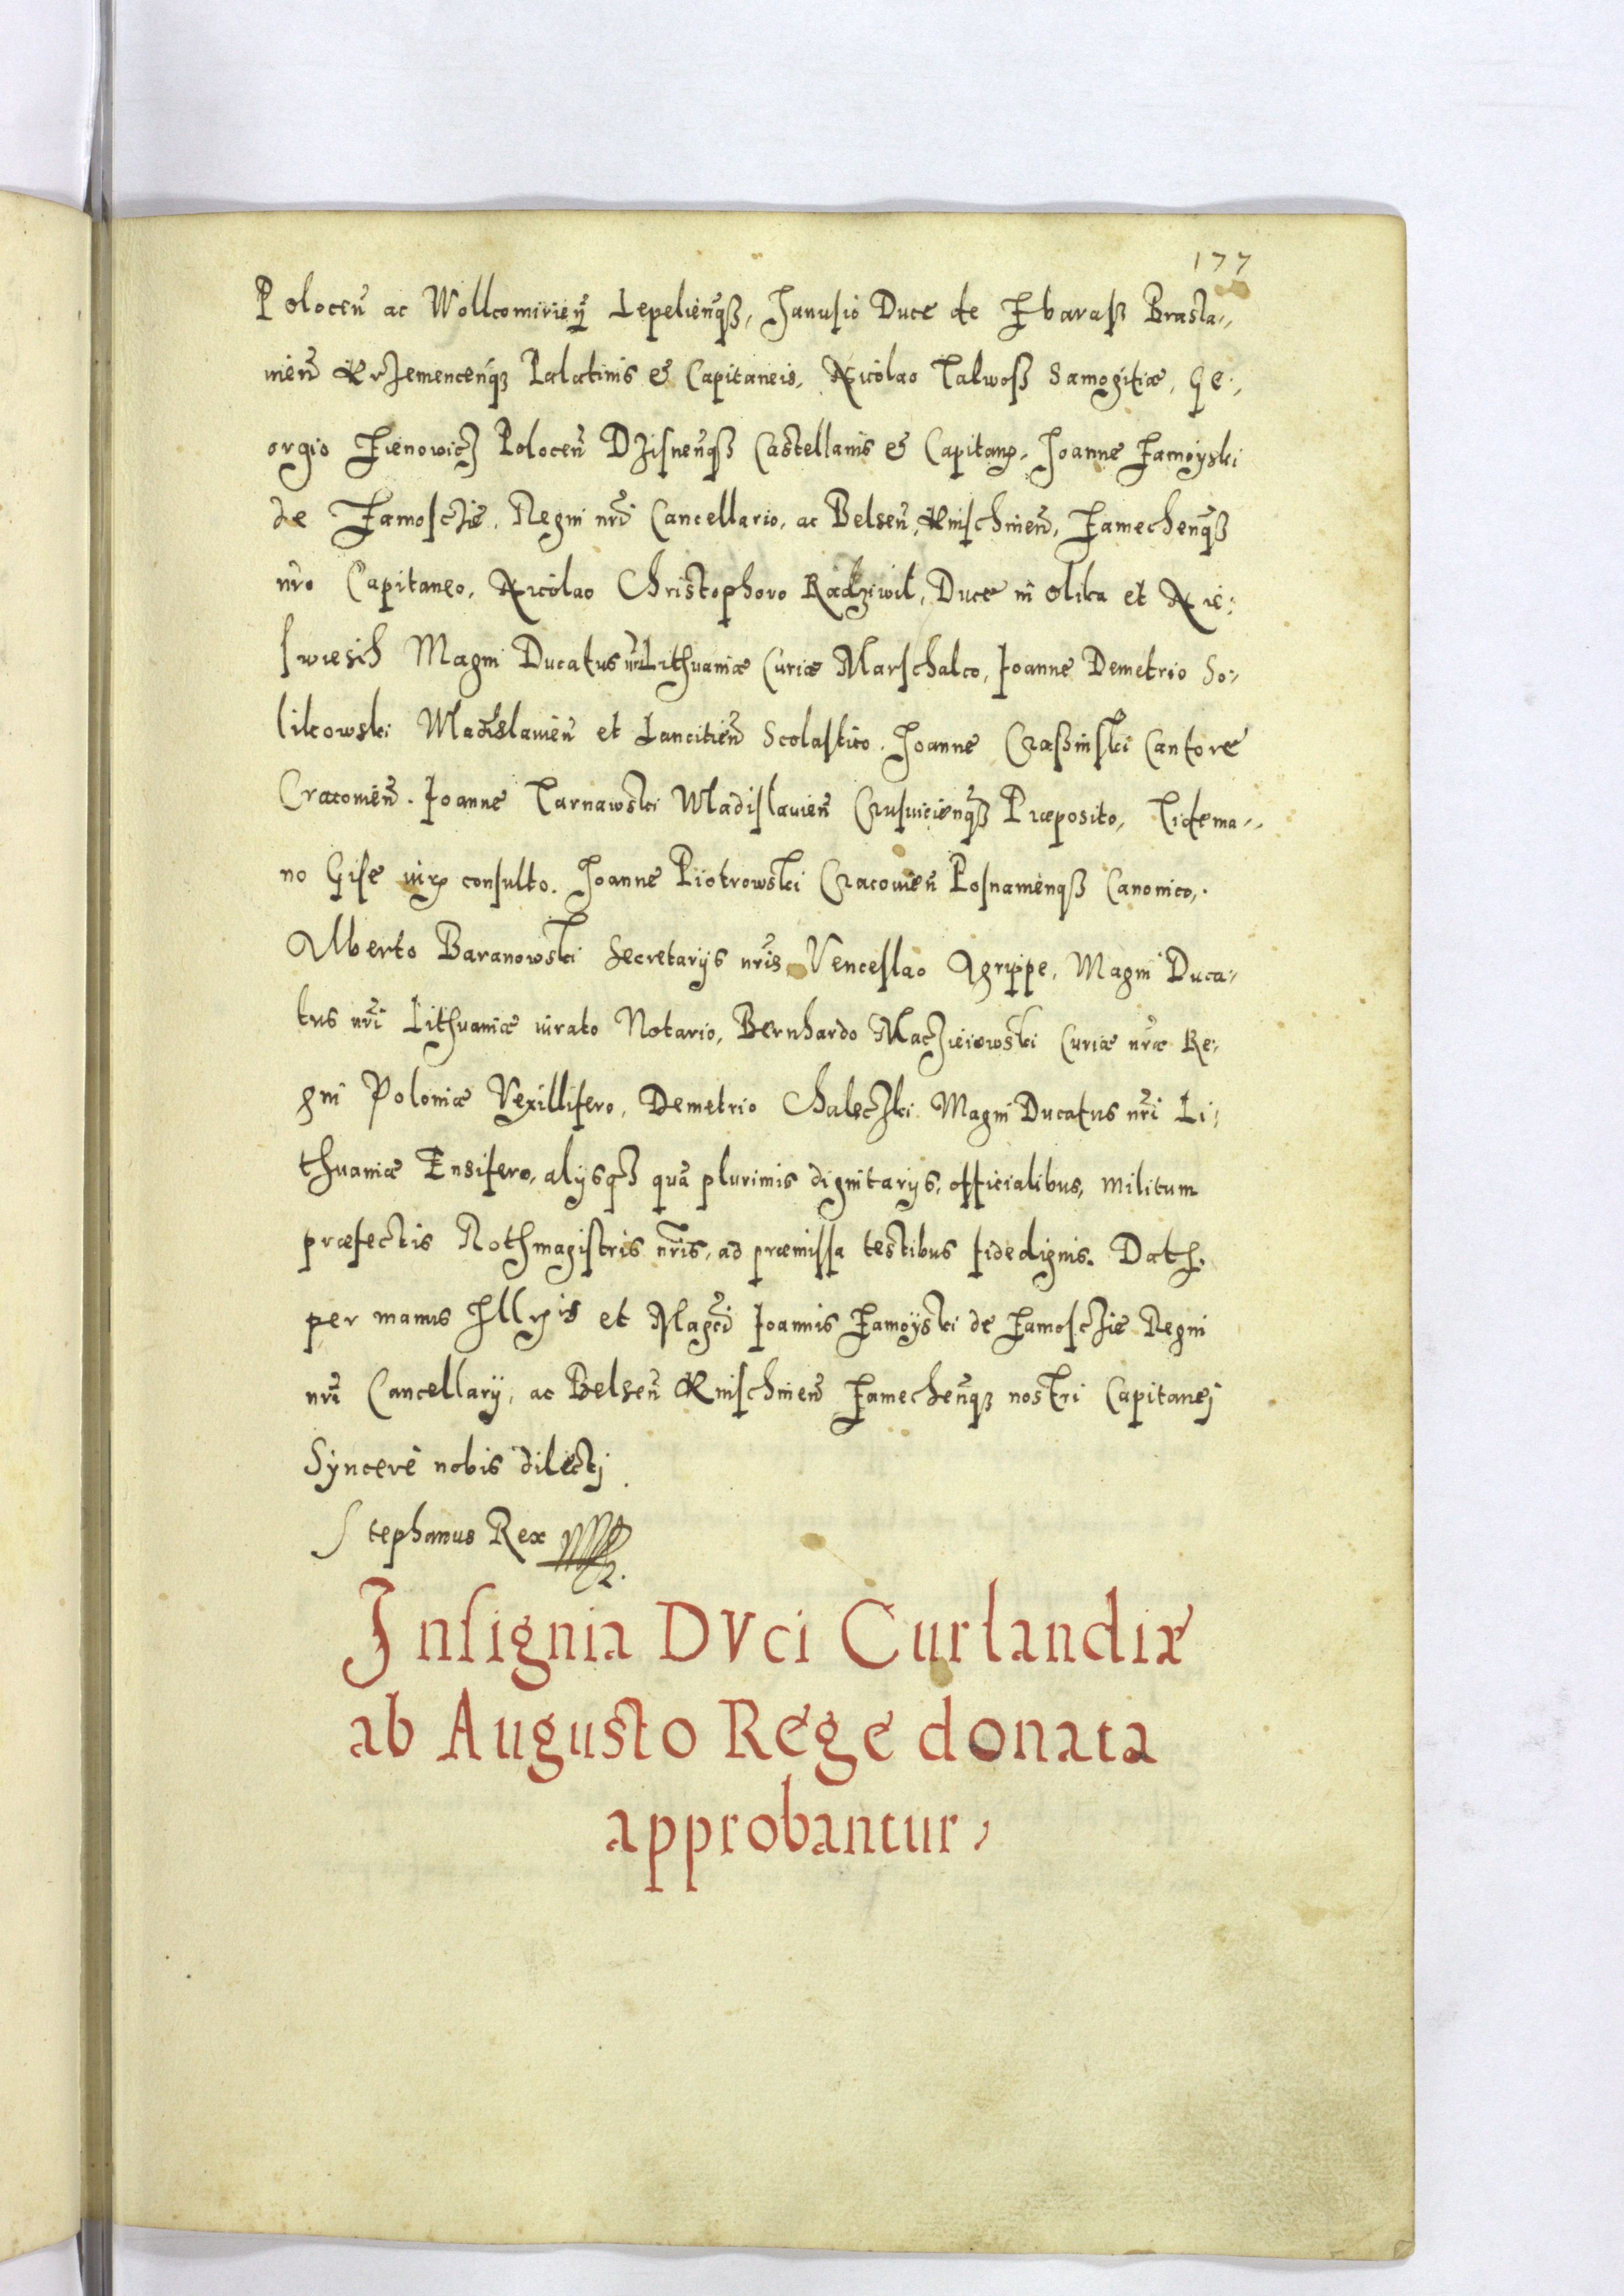 177
Poloceñ ac Wollcomirieñ Lepelieñqß, Janusio Duce de Zbaraß Brasla-
uieñ Krzemenceñqz Palatinis & Capitaneis, Nicolao Talwoß Samogitiæ, Ge-
orgio Zienowicz Poloceñ Dzisneñqß Castellanis & Capitang, Joanne Zamoyski
de Zamosczie, Regni nrĩ Cancellario, ac Belseñ, Knischineñ, Zamecheñqß
nro Capitaneo, Nicolao Christophoro Radziwil, Duce in Olika et Nie-
swiesch Magni Ducatus nrĩ Lithuaniæ Curiæ Marschalco, Joanne Demetrio So-
likowski Wladislauieñ et Lancitieñ Scolastico. Joanne Craßinski Cantore
Cracouieñ. Joanne Tarnawski Wladislauieñ Crusuicieñqß Præposito, Tidema-
no Gise consulto. Joanne Piotrowski Cracouieñ Posnanieñqß Canonico,
Alberto Baranowski Secretarijs nrĩs, Venceslao Agrippe, Magni Duca-
tus nrĩ Lithuaniæ iurato Notario, Bernhardo Maczieiowski Curiæ nræ Re-
gni Poloniæ Vexillifero, Demetrio Chaleczki Magni Ducatus nrĩ Li-
thuaniæ Ensifero, alijsqß quã plurimis dignitarijs, officialibus, militum
præfectis Rothmagistris nrĩs, ad præmissa testibus fidedignis. Dat
per manus Illris et Magci Joannis Zamoÿski de Zamosczie Regni
nrĩ Cancellarij, ac Belseñ Knischineñ Zamecheñqz nostri Capitanej
Syncere nobis dilectj
Stephanus Rex
Insignia DVci Curlandiæ
ab Augusto Rege donata
approbantur,